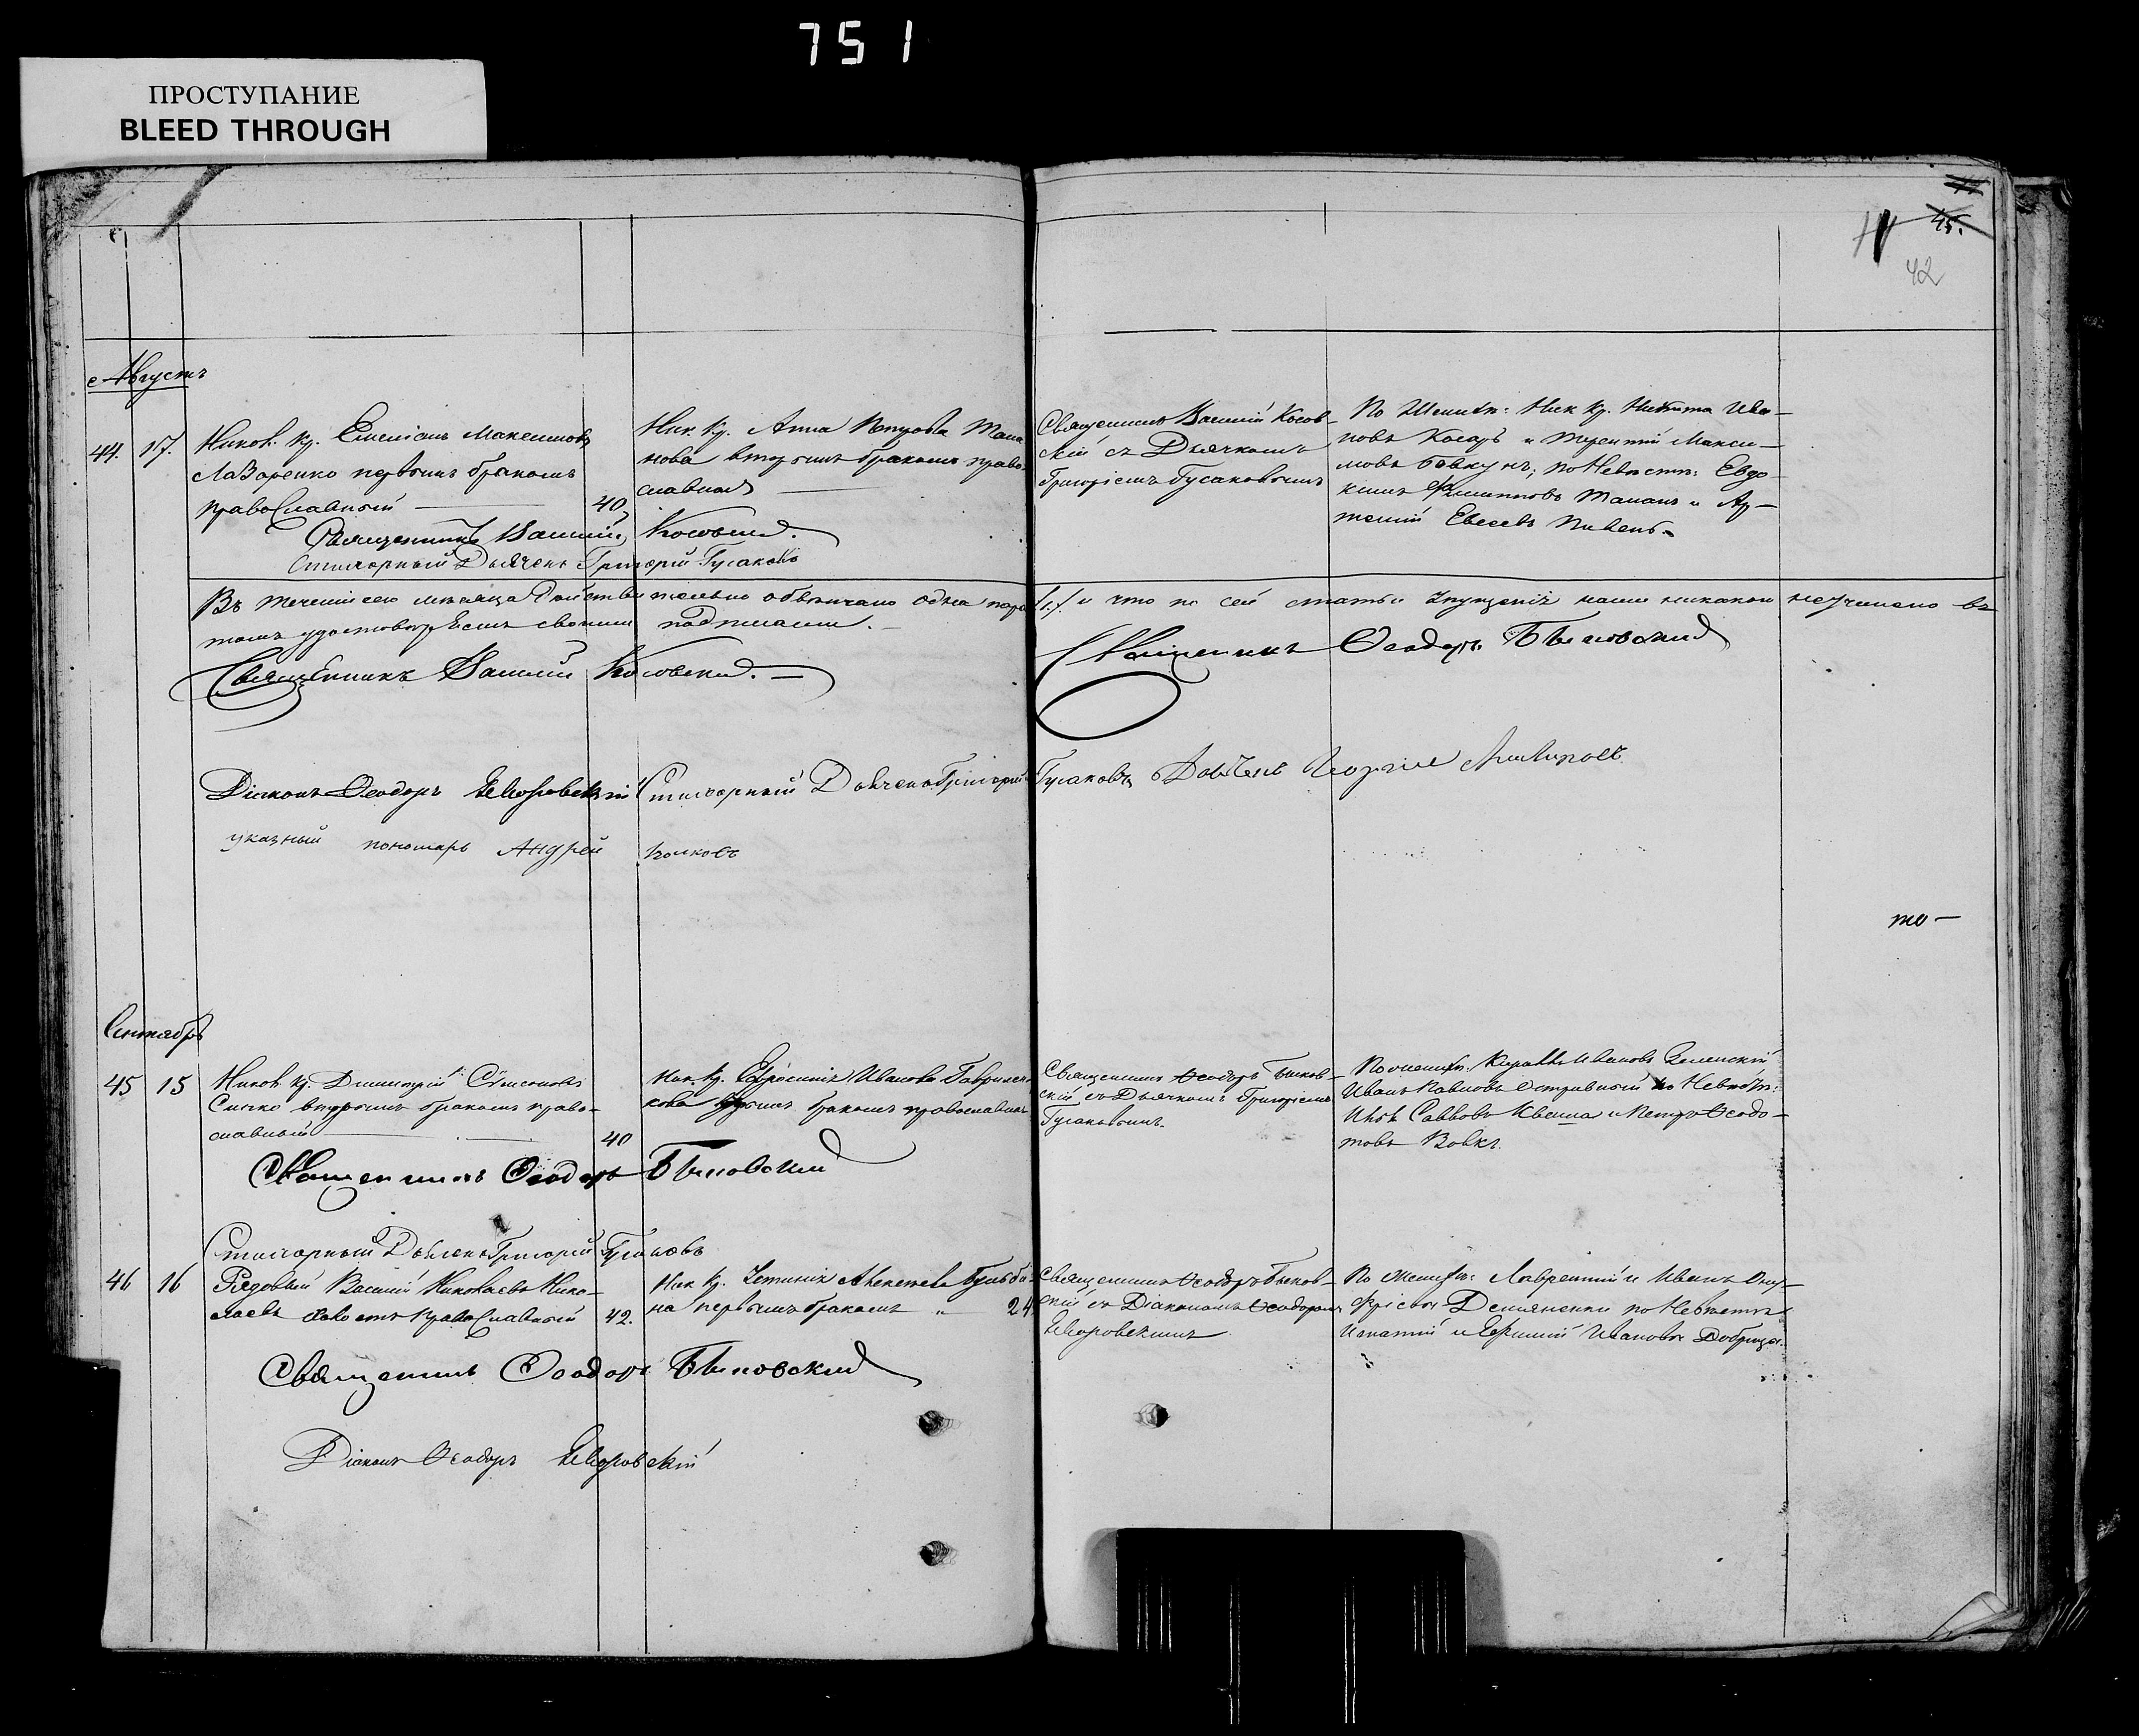 751
ПРОСТУПАНИЕ
BLEED THROUGH
45.
42
Августъ
44. 17. Ников. кр. Емеліанъ Максимовъ
Лазаренко первымъ бракомъ
православный 40
Ник. кр. Анна Петрова Мана
нова вторымъ бракомъ право
славная
Священникъ Василій Косов-
скій съ Дьячкомъ
Григоріемъ Гусаковымъ
По Жених: Ник кр. Никита Ива-
новъ Косаръ и Терентій Макси-
мовъ Бовкунъ; по Невѣстѣ: Евдо-
кимъ Филипповъ Мананъ и Ар-
темій Евсеевъ Пивень.
Священникъ Василій Косовскій.
Стихарный Дьячекъ Григорій Гусаковъ
Въ теченіи сего мѣсяца дѣйствительно обвѣнчана одна пара /1./ и что по сей статьи упущенія нами никакого неучинено въ
томъ удостовѣряемъ своими подписами.
Священникъ Василій Косовскій.
Священникъ Ѳеодоръ Быковскій
Діаконъ Ѳеодоръ Яворовскій Стихарный Дьячекъ Григорій Гусаковъ Дьячекъ
указный пономарь Андрей
то-
Сентябрь
45 15 Ников. кр. Димитрій Сѵмеоновъ
Синко вторымъ бракомъ право-
славный 40
Ник. кр. Ефросинія Иванова Гаврилен-
кова бракомъ православная
Священникъ Ѳеодоръ Быков-
скій съ Дьячкомъ Григоріемъ
Гусаковымъ.
По жених: Ивановъ Зеленскій
Иванъ Павловъ Островный по Невѣстѣ:
Саввовъ Кваша и Петръ Ѳеодо-
товъ Вовкъ.
Священникъ Ѳеодоръ Быковскій
Стихарный Дьячекъ Григорій Гусаковъ
46 16 Рядовый Василій Николаевъ Нико-
лаевъ православный 42.
Ник. кр. Устинія
на первымъ бракомъ " 24
Священникъ Ѳеодоръ Быков-
скій съ Діакономъ Ѳеодоромъ
Яворовскимъ
По Жених: Лаврентій и Иванъ Ону-
фріевы Демяненки по Невѣстѣ
Игнатій и Ефимій Ивановы Добрица.
Священникъ Ѳеодоръ Быковскій
Діаконъ Ѳеодоръ Яворовскій